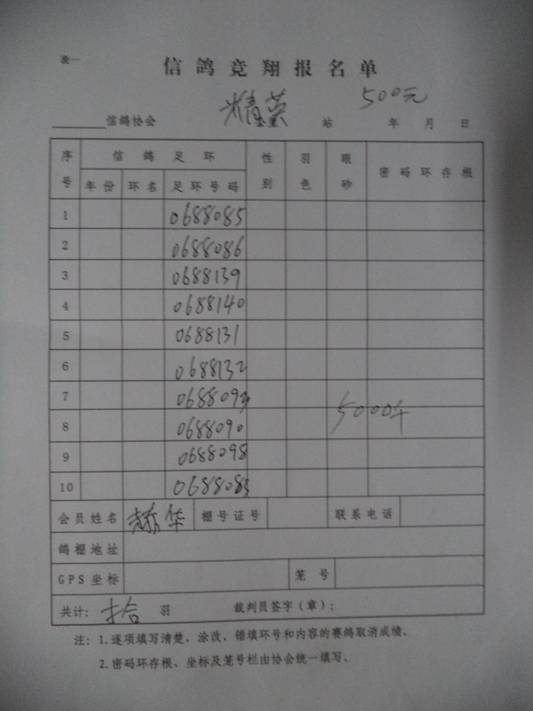 表一
信鸽竞翔报名单
信鸽协会 精英 站 500元 年 月 日
序号 信鸽足环 性别 羽色 眼砂 密码环存根
年份 环名 足环号码
1 0688085
2 0688086
3 0688139
4 0688140
5 0688131
6 0688132
7 0688093
8 0688090
9 0688098
10 0688083
会员姓名 华 棚号证号 联系电话
鸽棚地址
GPS坐标 笼号
共计: 拾 羽 裁判员签字(章):
注:1.逐项填写清楚、涂改、错填环号和内容的赛鸽取消成绩。
2.密码环存根、坐标及笼号栏由协会统一填写。